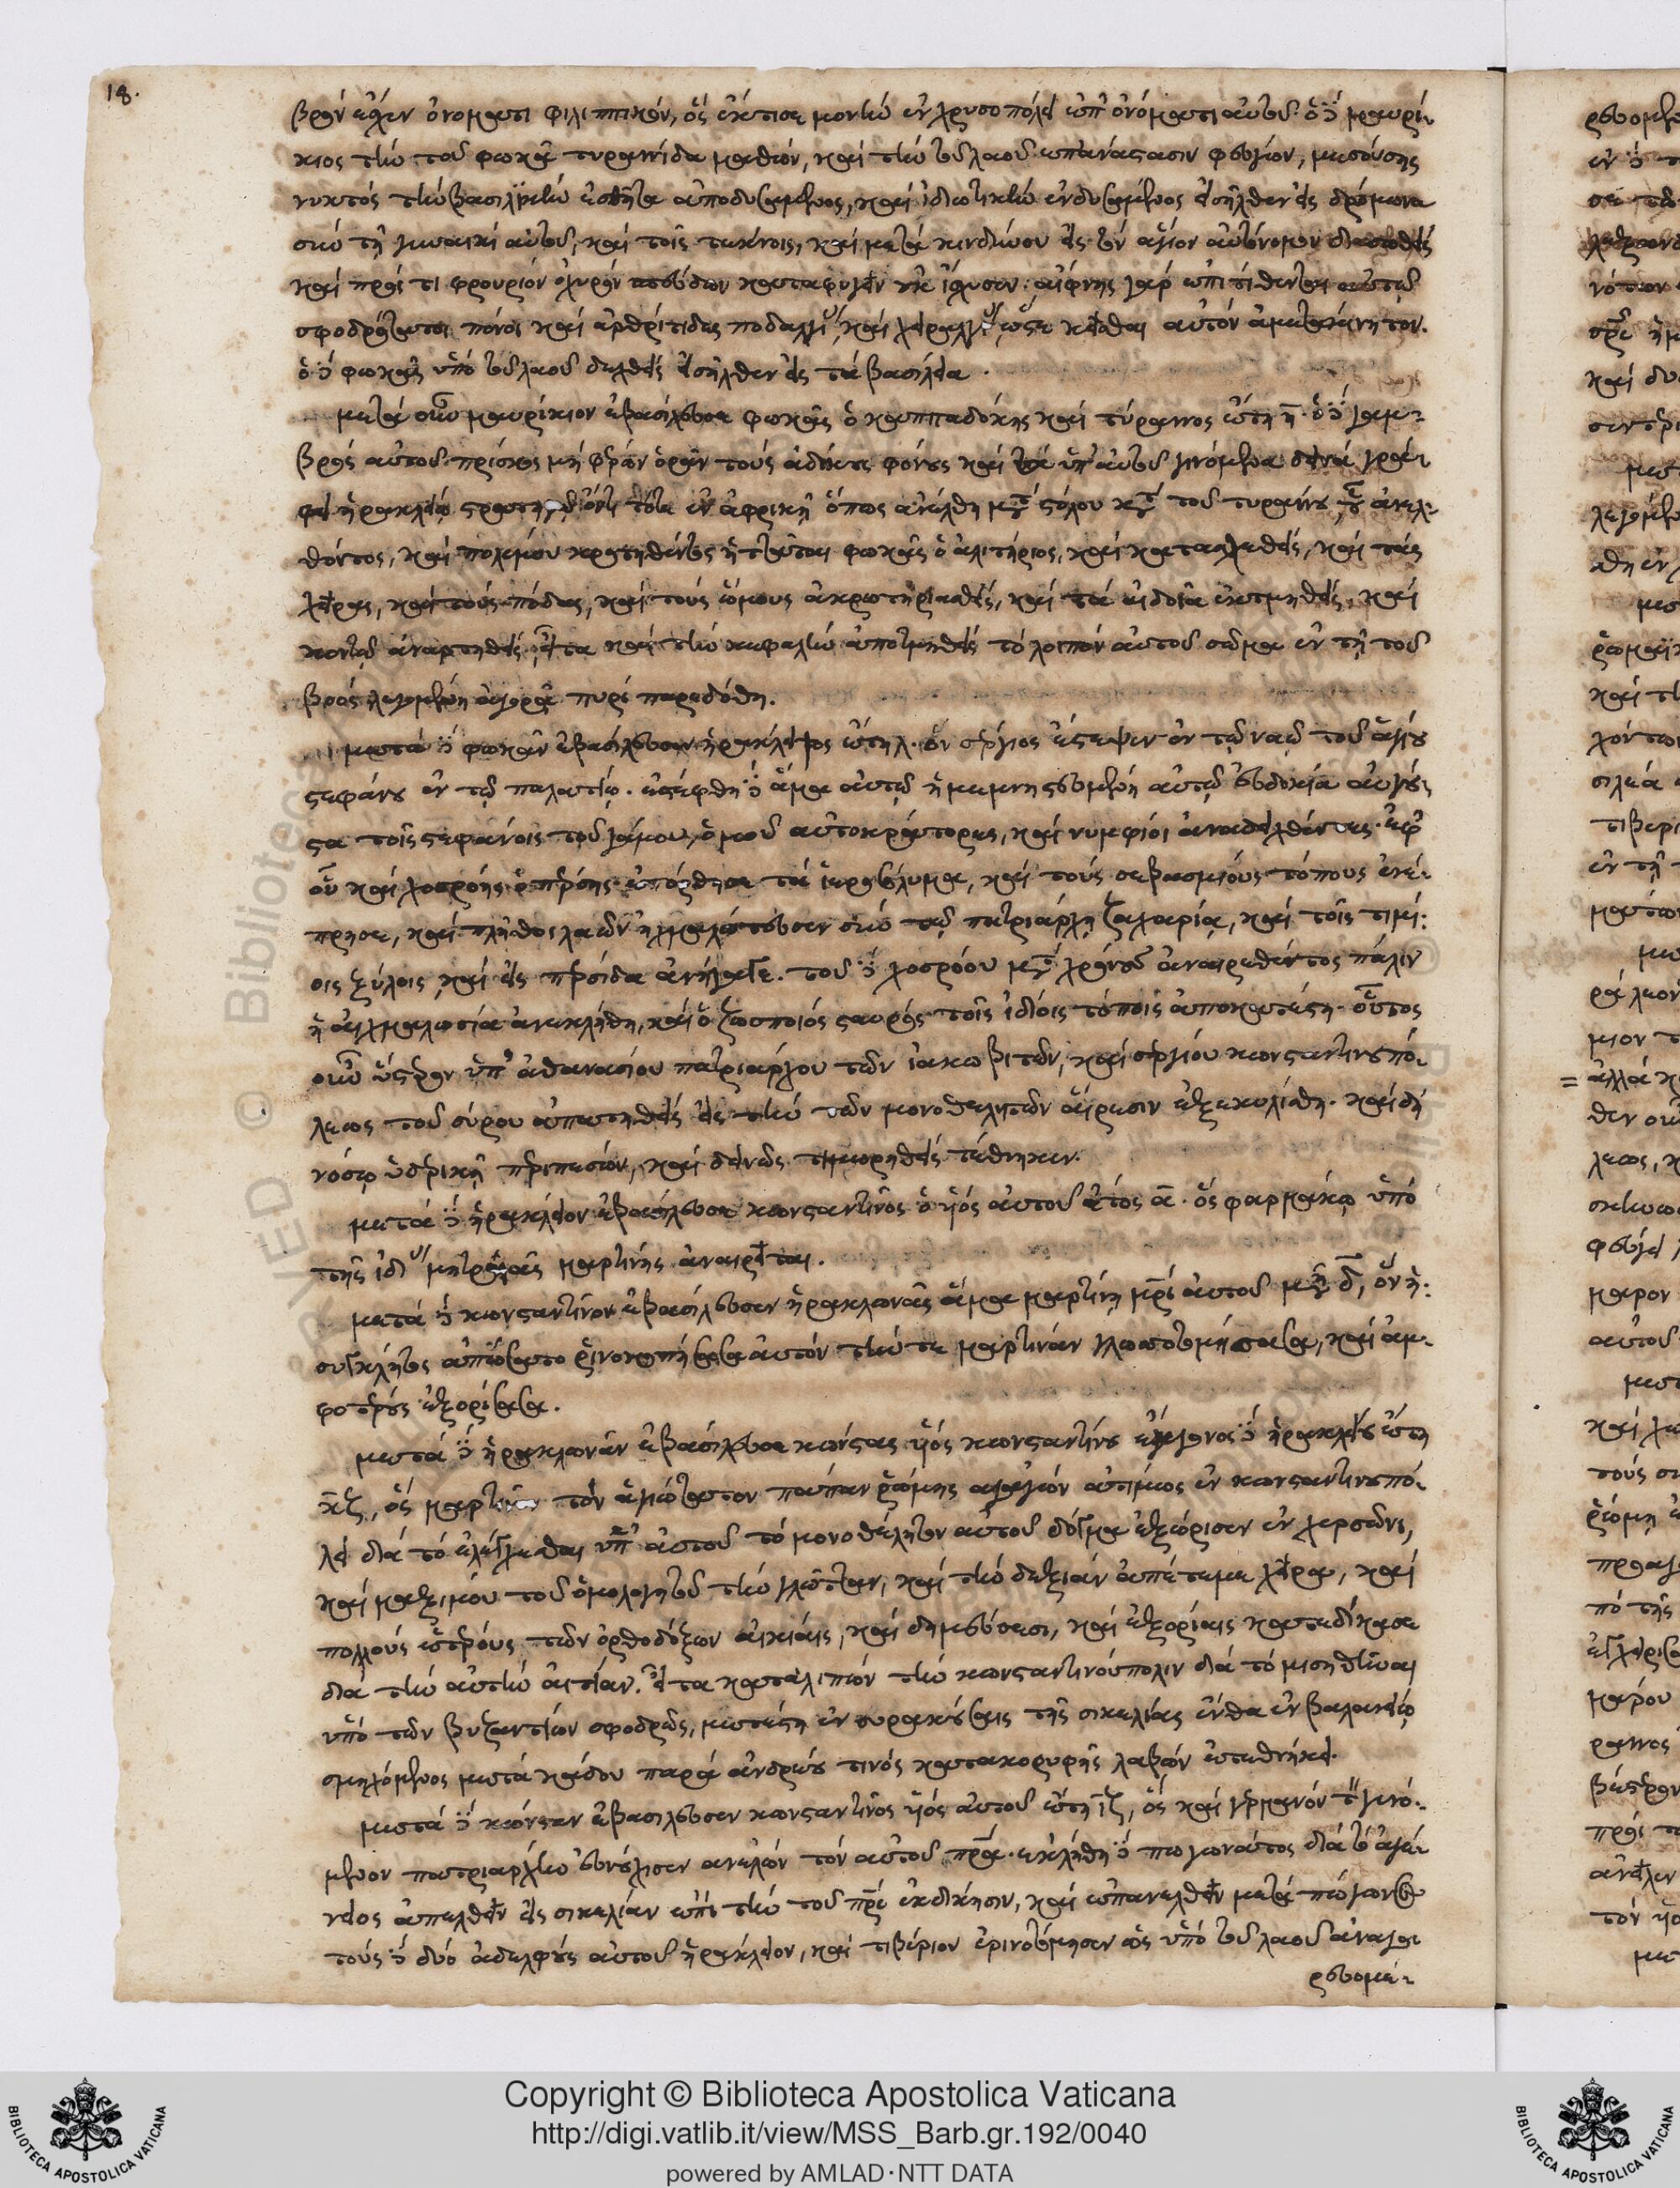 18.
βρὸν εἶχεν ὀνόματι φιλιππικόν, ὃς ἔκτισε μονὴν ἐν χρυσοπόλει ἐπ' ὀνόματι αὐτοῦ. ὁ δὲ μαυρί-
κιος τὴν τοῦ φωκᾶ τυραννίδα μαθὼν, καὶ τὴν τοῦ λαοῦ ἐπανάστασιν φεύγων, μεσούσης
νυκτὸς τὴν βασιλικὴν ἐσθῆτα ἀποδυσάμενος, καὶ ἰδιωτικὴν ἐνδυσάμενος εἰσῆλθεν εἰς δρόμωνα
σὺν τῇ γυναικὶ αὐτοῦ, καὶ τοῖς τέκνοις, καὶ μετὰ κινδύνου εἰς τὸν ἅγιον αὐτόνομον διασωθεὶς
καὶ πρός τι φρούριον ὀχυρὸν σπεύδων καταφυγεῖν οὐκ ἴσχυσεν· αἴφνης γὰρ ἐπιτίθενται αὐτῷ
σφοδρότατοι πόνοι καὶ ἀρθρίτιδες ποδαλγίας, καὶ χειραλγίας, ὥστε κεῖσθαι αὐτὸν ἀμετακίνητον.
ὁ δὲ φωκᾶς ὑπὸ τοῦ λαοῦ δεχθεὶς εἰσῆλθεν εἰς τὰ βασίλεια.
μετὰ οὖν μαυρίκιον ἐβασίλευσε φωκᾶς ὁ καππαδόκης καὶ τύραννος ἔτη η. ὁ δὲ γαμ-
βρὸς αὐτοῦ πρίσκος μὴ φέρων ὁρᾶν τοὺς ἀδίκους φόνους καὶ τὰ ὑπ' αὐτοῦ γινόμενα δεινὰ γρά-
φει ἡρακλείῳ στρατηγοῦντι τότε ἐν ἀφρικῇ ὅπως ἀνέλθη μετὰ στόλου κατὰ τοῦ τυράννου, τοῦ ἀνελ-
θόντος, καὶ πολέμου κροτηθέντος ἡττᾶται φωκᾶς ὁ ἀλιτήριος, καὶ κατασχεθεὶς, καὶ τὰς
χεῖρας, καὶ τοὺς πόδας, καὶ τοὺς ὤμους ἀκρωτηριασθεὶς, καὶ τὰ αἰδοῖα ἐκτμηθεὶς, καὶ
κοντῷ ἀναρτηθεὶς, εἶτα καὶ τὴν κεφαλὴν ἀποτμηθεὶς τὸ λοιπὸν αὐτοῦ σῶμα ἐν τῇ τοῦ
βοὸς λεγομένῃ ἀγορᾷ πυρὶ παρεδόθη.
μετὰ δὲ φωκᾶν ἐβασίλευσεν ἡράκλειος ἔτη λ. ὃν σέργιος ἔστεψεν ἐν τῷ ναῷ τοῦ ἁγίου
στεφάνου ἐν τῷ παλατίῳ. ἐστέφθη δὲ ἅμα αὐτῷ ἡ μεμνηστευμένη αὐτῷ εὐδοκία αὐγού-
στα τοῖς στεφάνοις τοῦ γάμου, ὁμοῦ αὐτοκράτορες, καὶ νυμφίοι ἀναδειχθέντες. ἐφ'
οὗ καὶ χοσρόης ὁ πέρσης ἐπόρθησε τὰ ἱεροσόλυμα, καὶ τοὺς σεβασμίους τόπους ἐνέ-
πρησε, καὶ πλῆθος λαῶν ᾐχμαλώτευσεν σὺν τῷ πατριάρχῃ ζαχαρίᾳ, καὶ τοῖς τιμί-
οις ξύλοις, καὶ εἰς περσίδα ἀνήγαγε. τοῦ δὲ χοσρόου μετὰ χρόνους ἀναιρεθέντος πάλιν
ἡ αἰχμαλωσία ἀνεκλήθη, καὶ ὁ ζωοποιὸς σταυρὸς τοῖς ἰδίοις τόποις ἀποκατέστη. οὗτος
οὖν ὕστερον ὑπ' ἀθανασίου πατριάρχου τῶν ἰακωβιτῶν, καὶ σεργίου κωνσταντινουπό-
λεως τοῦ σύρου ἀπατηθεὶς εἰς τὴν τῶν μονοθελητῶν αἵρεσιν ἐξεκυλίσθη. καὶ δὴ
νόσῳ ὑδερικῇ περιπεσὼν, καὶ δεινῶς τιμωρηθεὶς τέθνηκεν.
μετὰ δὲ ἡράκλειον ἐβασίλευσε κωνσταντῖνος ὁ υἱὸς αὐτοῦ ἔτος α. ὃς φαρμάκῳ ὑπὸ
τῆς ἰδίας μητρυιᾶς μαρτίνης ἀναιρεῖται.
μετὰ δὲ κωνσταντῖνον ἐβασίλευσεν ἡρακλωνᾶς ἅμα μαρτίνῃ μητρὶ αὐτοῦ μῆνας δ, ὃν ἡ
σύγκλητος ἀπώσατο ῥινοκοπήσασα αὐτὸν τήν τε μαρτίναν γλωττοτομήσασα, καὶ ἀμ-
φοτέρους ἐξορίσασα.
μετὰ δὲ ἡρακλωνᾶν ἐβασίλευσε κώνστας υἱὸς κωνσταντίνου ἔγγονος δὲ ἡρακλείου ἔτη
κζ, ὃς μαρτῖνον τὸν ἁγιώτατον πάπαν ῥώμης ἀγαγὼν ἀτίμως ἐν κωνσταντινουπό-
λει διὰ τὸ ἐλέγχεσθαι ὑπ' αὐτοῦ τὸ μονοθέλητον αὐτοῦ δόγμα ἐξώρισεν ἐν χερσῶνι,
καὶ μαξίμου τοῦ ὁμολογητοῦ τὴν γλῶτταν, καὶ τὴν δεξιὰν ἀπέτεμε χεῖρα, καὶ
πολλοὺς ἑτέρους τῶν ὀρθοδόξων αἰκίαις, καὶ δημεύσεσι, καὶ ἐξορίαις κατεδίκασε
διὰ τὴν αὐτὴν αἰτίαν. εἶτα καταλιπὼν τὴν κωνσταντινούπολιν διὰ τὸ μισηθῆναι
ὑπὸ τῶν βυζαντίων σφοδρῶς, μετέστη ἐν συρακούσαις τῆς σικελίας ἔνθα ἐν βαλανείῳ
σμηχόμενος μετὰ κάδου παρὰ ἀνδρέου τινὸς κατακορυφῆς λαβὼν ἐτεθνήκει.
μετὰ δὲ κώνσταν ἐβασίλευσεν κωνσταντῖνος υἱὸς αὐτοῦ ἔτη ιζ, ὃς καὶ γερμανὸν τὸν γενό-
μενον πατριάρχην εὐνούχισεν ἀνελὼν τὸν αὐτοῦ πατέρα. ἐκλήθη δὲ πωγωνάτος διὰ τὸ ἀγέ-
νειος ἀπελθεῖν εἰς σικελίαν ἐπὶ τὴν τοῦ πατρὸς ἐκδίκησιν, καὶ ἐπανελθεῖν μετὰ πώγωνος
τοὺς δὲ δύο ἀδελφοὺς αὐτοῦ ἡράκλειον, καὶ τιβέριον ἐρινοτόμησεν ὡς ὑπὸ τοῦ λαοῦ ἀναγο
ρευομέ-
Copyright © Biblioteca Apostolica Vaticana
http://digi.vatlib.it/view/MSS_Barb.gr.192/0040
powered by AMLAD·NTT DATA